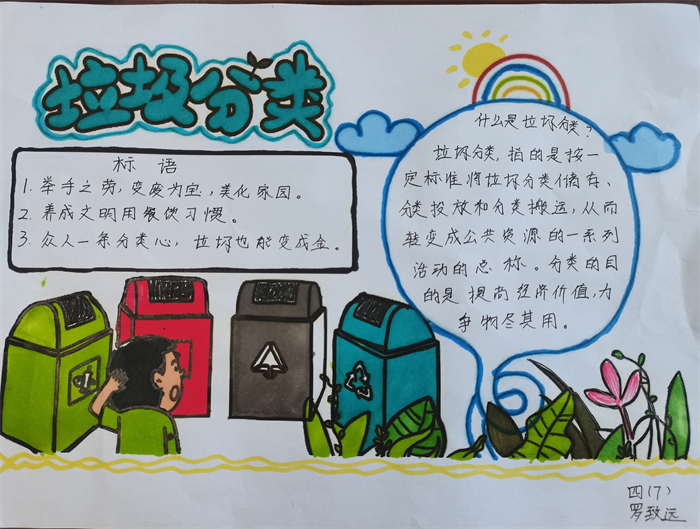 垃圾分类
标语
1. 举手之劳，变废为宝，美化家园。
2. 养成文明用餐饮习惯。
3. 众人一条分类心，垃圾也能变成金。
什么是垃圾分类？
垃圾分类，指的是按一
定标准将垃圾分类储存、
分类投放和分类搬运，从而
转变成公共资源的一系列
活动的总称。分类的目
的是提高经济价值，力
争物尽其用。
四(7)
罗致远